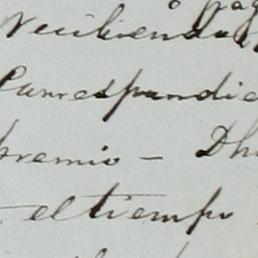 pag
Recibiendo
Correspondie
premio - Dh
el tiempo